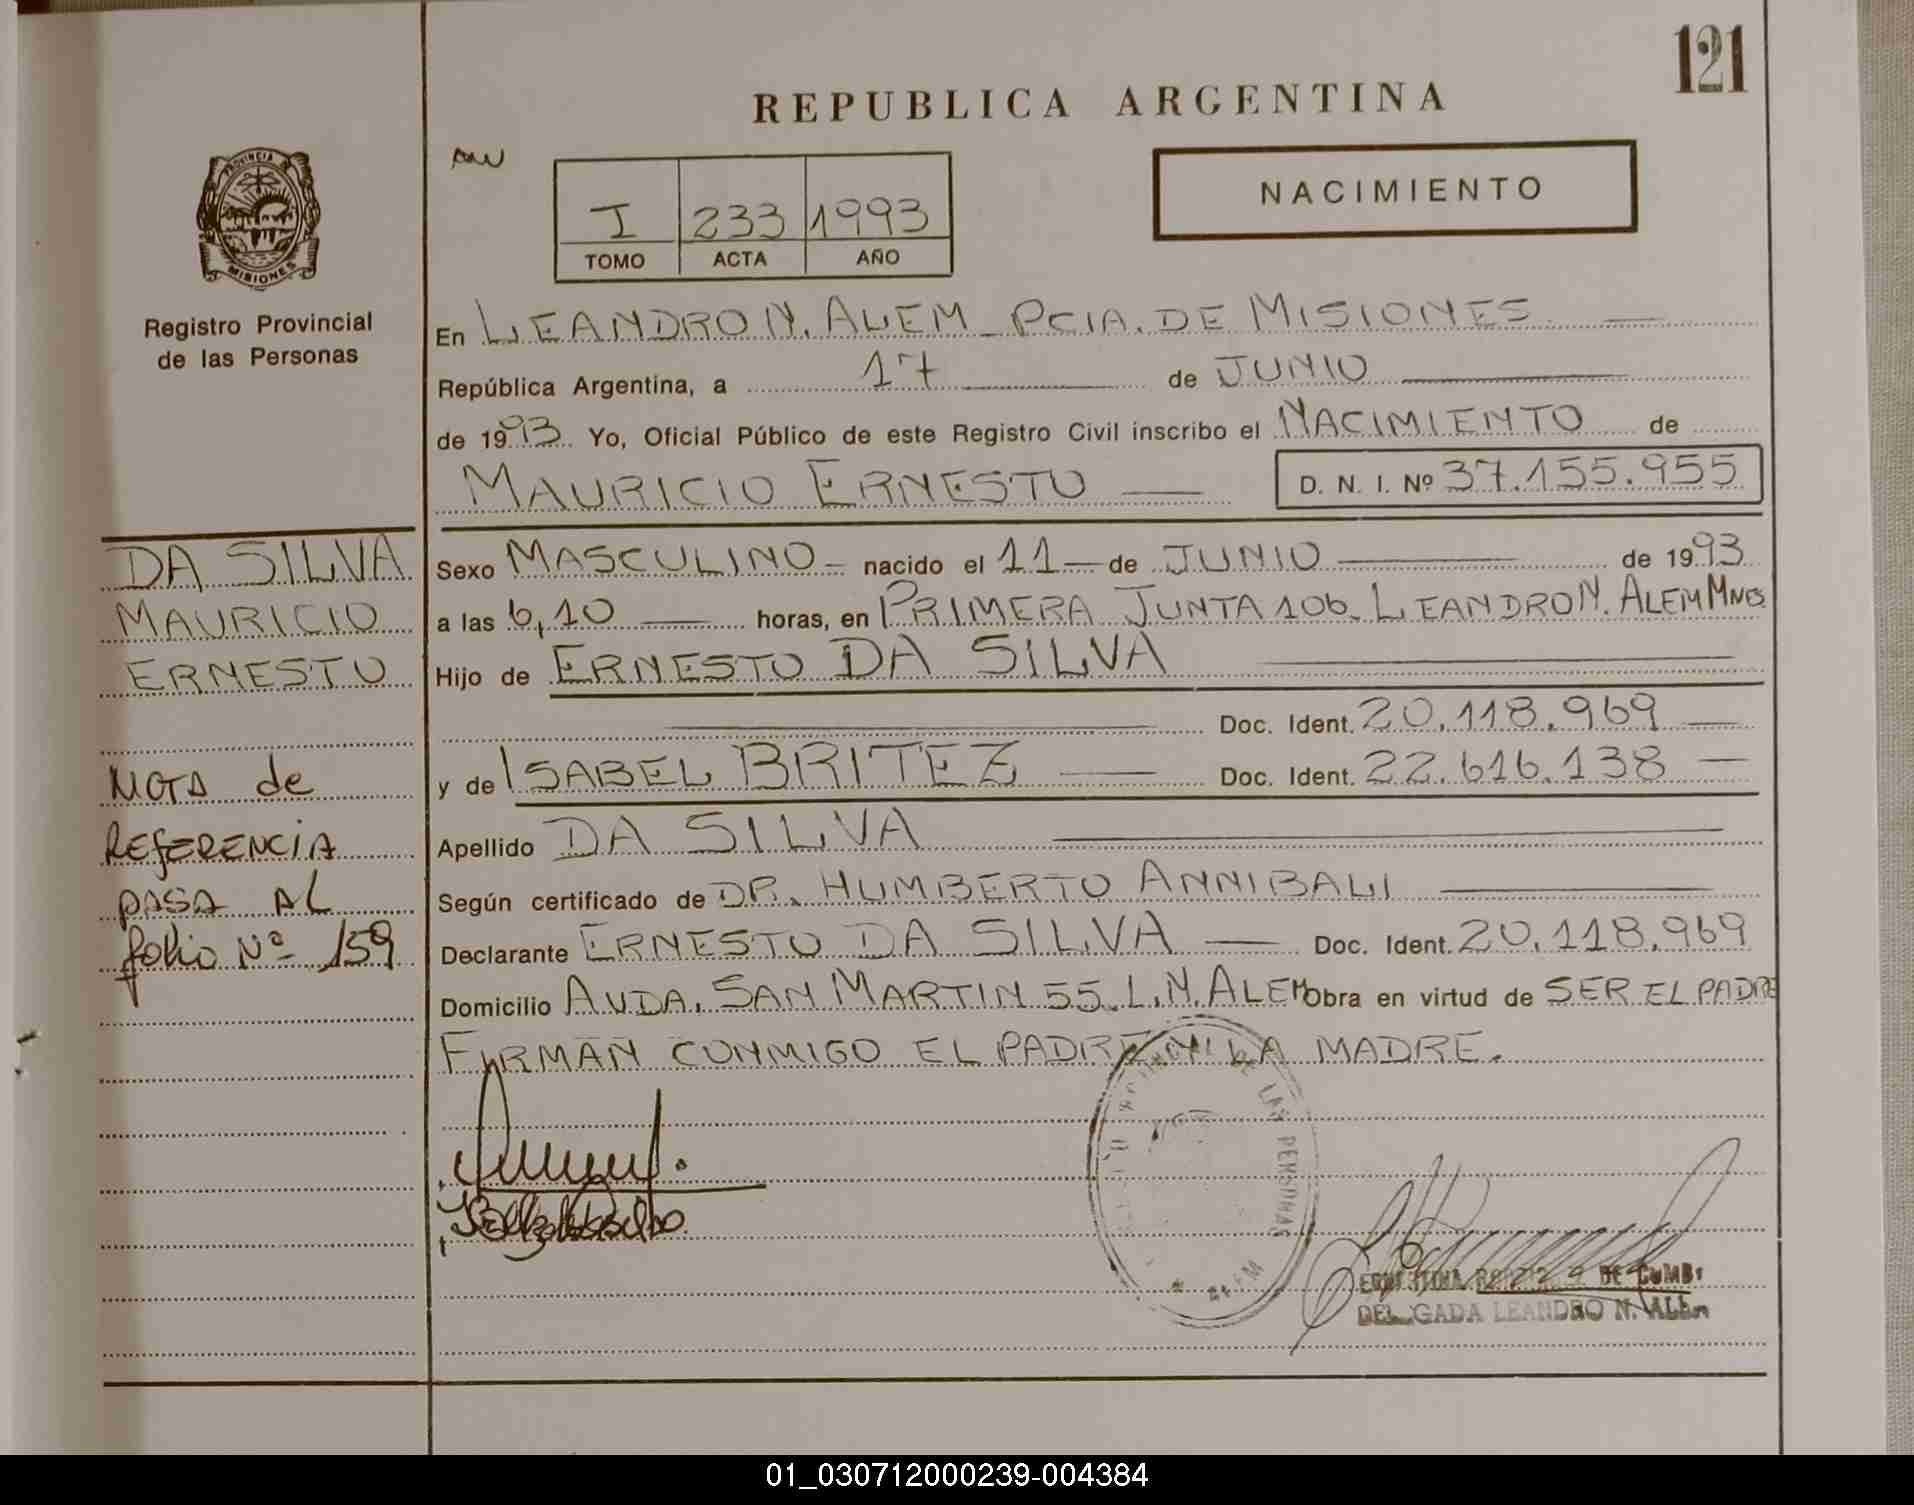 121
REPUBLICA ARGENTINA
NACIMIENTO
I 233 1993
TOMO ACTA AÑO
PROVINCIA
MISIONES
Registro Provincial
de las Personas
En LEANDRO N. ALEM - PCIA. DE MISIONES
República Argentina, a 17 de JUNIO
de 1993 Yo, Oficial Público de este Registro Civil inscribo el NACIMIENTO de
MAURICIO ERNESTO D. N. I. Nº 37.155.955
Sexo MASCULINO - nacido el 11 - de JUNIO de 1993
a las 6,10 horas, en PRIMERA JUNTA 106. LEANDRO N. ALEM MNES.
Hijo de ERNESTO DA SILVA
Doc. Ident. 20.118.969
y de ISABEL BRITEZ Doc. Ident. 22.616.138
Apellido DA SILVA
Según certificado de DR. HUMBERTO ANNIBALI
Declarante ERNESTO DA SILVA Doc. Ident. 20.118.969
Domicilio AVDA. SAN MARTIN 55. L.N. ALEM Obra en virtud de SER EL PADRE
FIRMAN CONMIGO EL PADRE Y LA MADRE.
DA SILVA
MAURICIO
ERNESTO
NOTA de
REFERENCIA
PASA AL
folio Nº 159
DE LAS PERSONAS
DE
LEANDRO N. ALEM
01_030712000239-004384